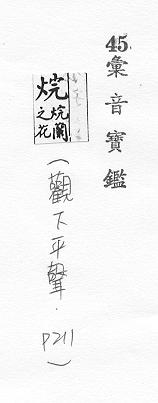 45彙音寶鑑
烷
烷蘭之花
(觀下平聲.P211)